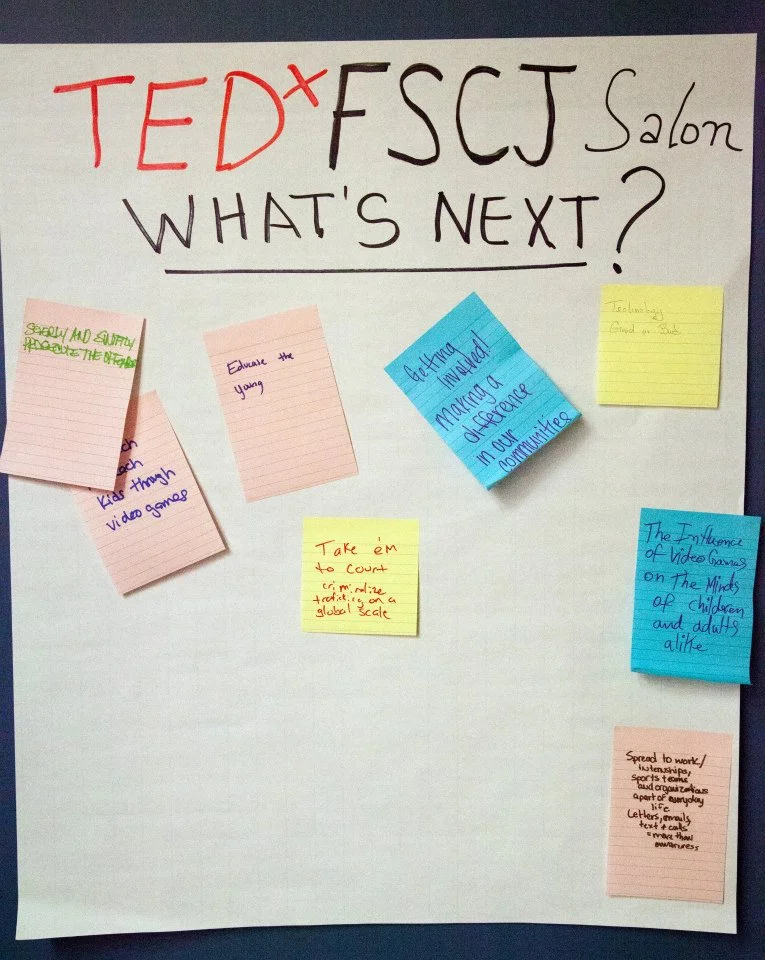 TEDxFSCJ Salon
WHAT'S NEXT?
SEVERLY AND SWIFTLY
PROSECUTE THE
Educate the
young
Getting
Involved!
Making a
difference
in our
communities
Technology
Good or Bad
Kids through
video games
Take ém
to court
criminalize
trafficking on a
global scale
The Influence
of Video Games
on The Minds
of children
and adults
alike
Spread to work/
internships,
sports teams
and organizations
apart of everyday
life
Letters, emails,
text + calls
= more than
awareness